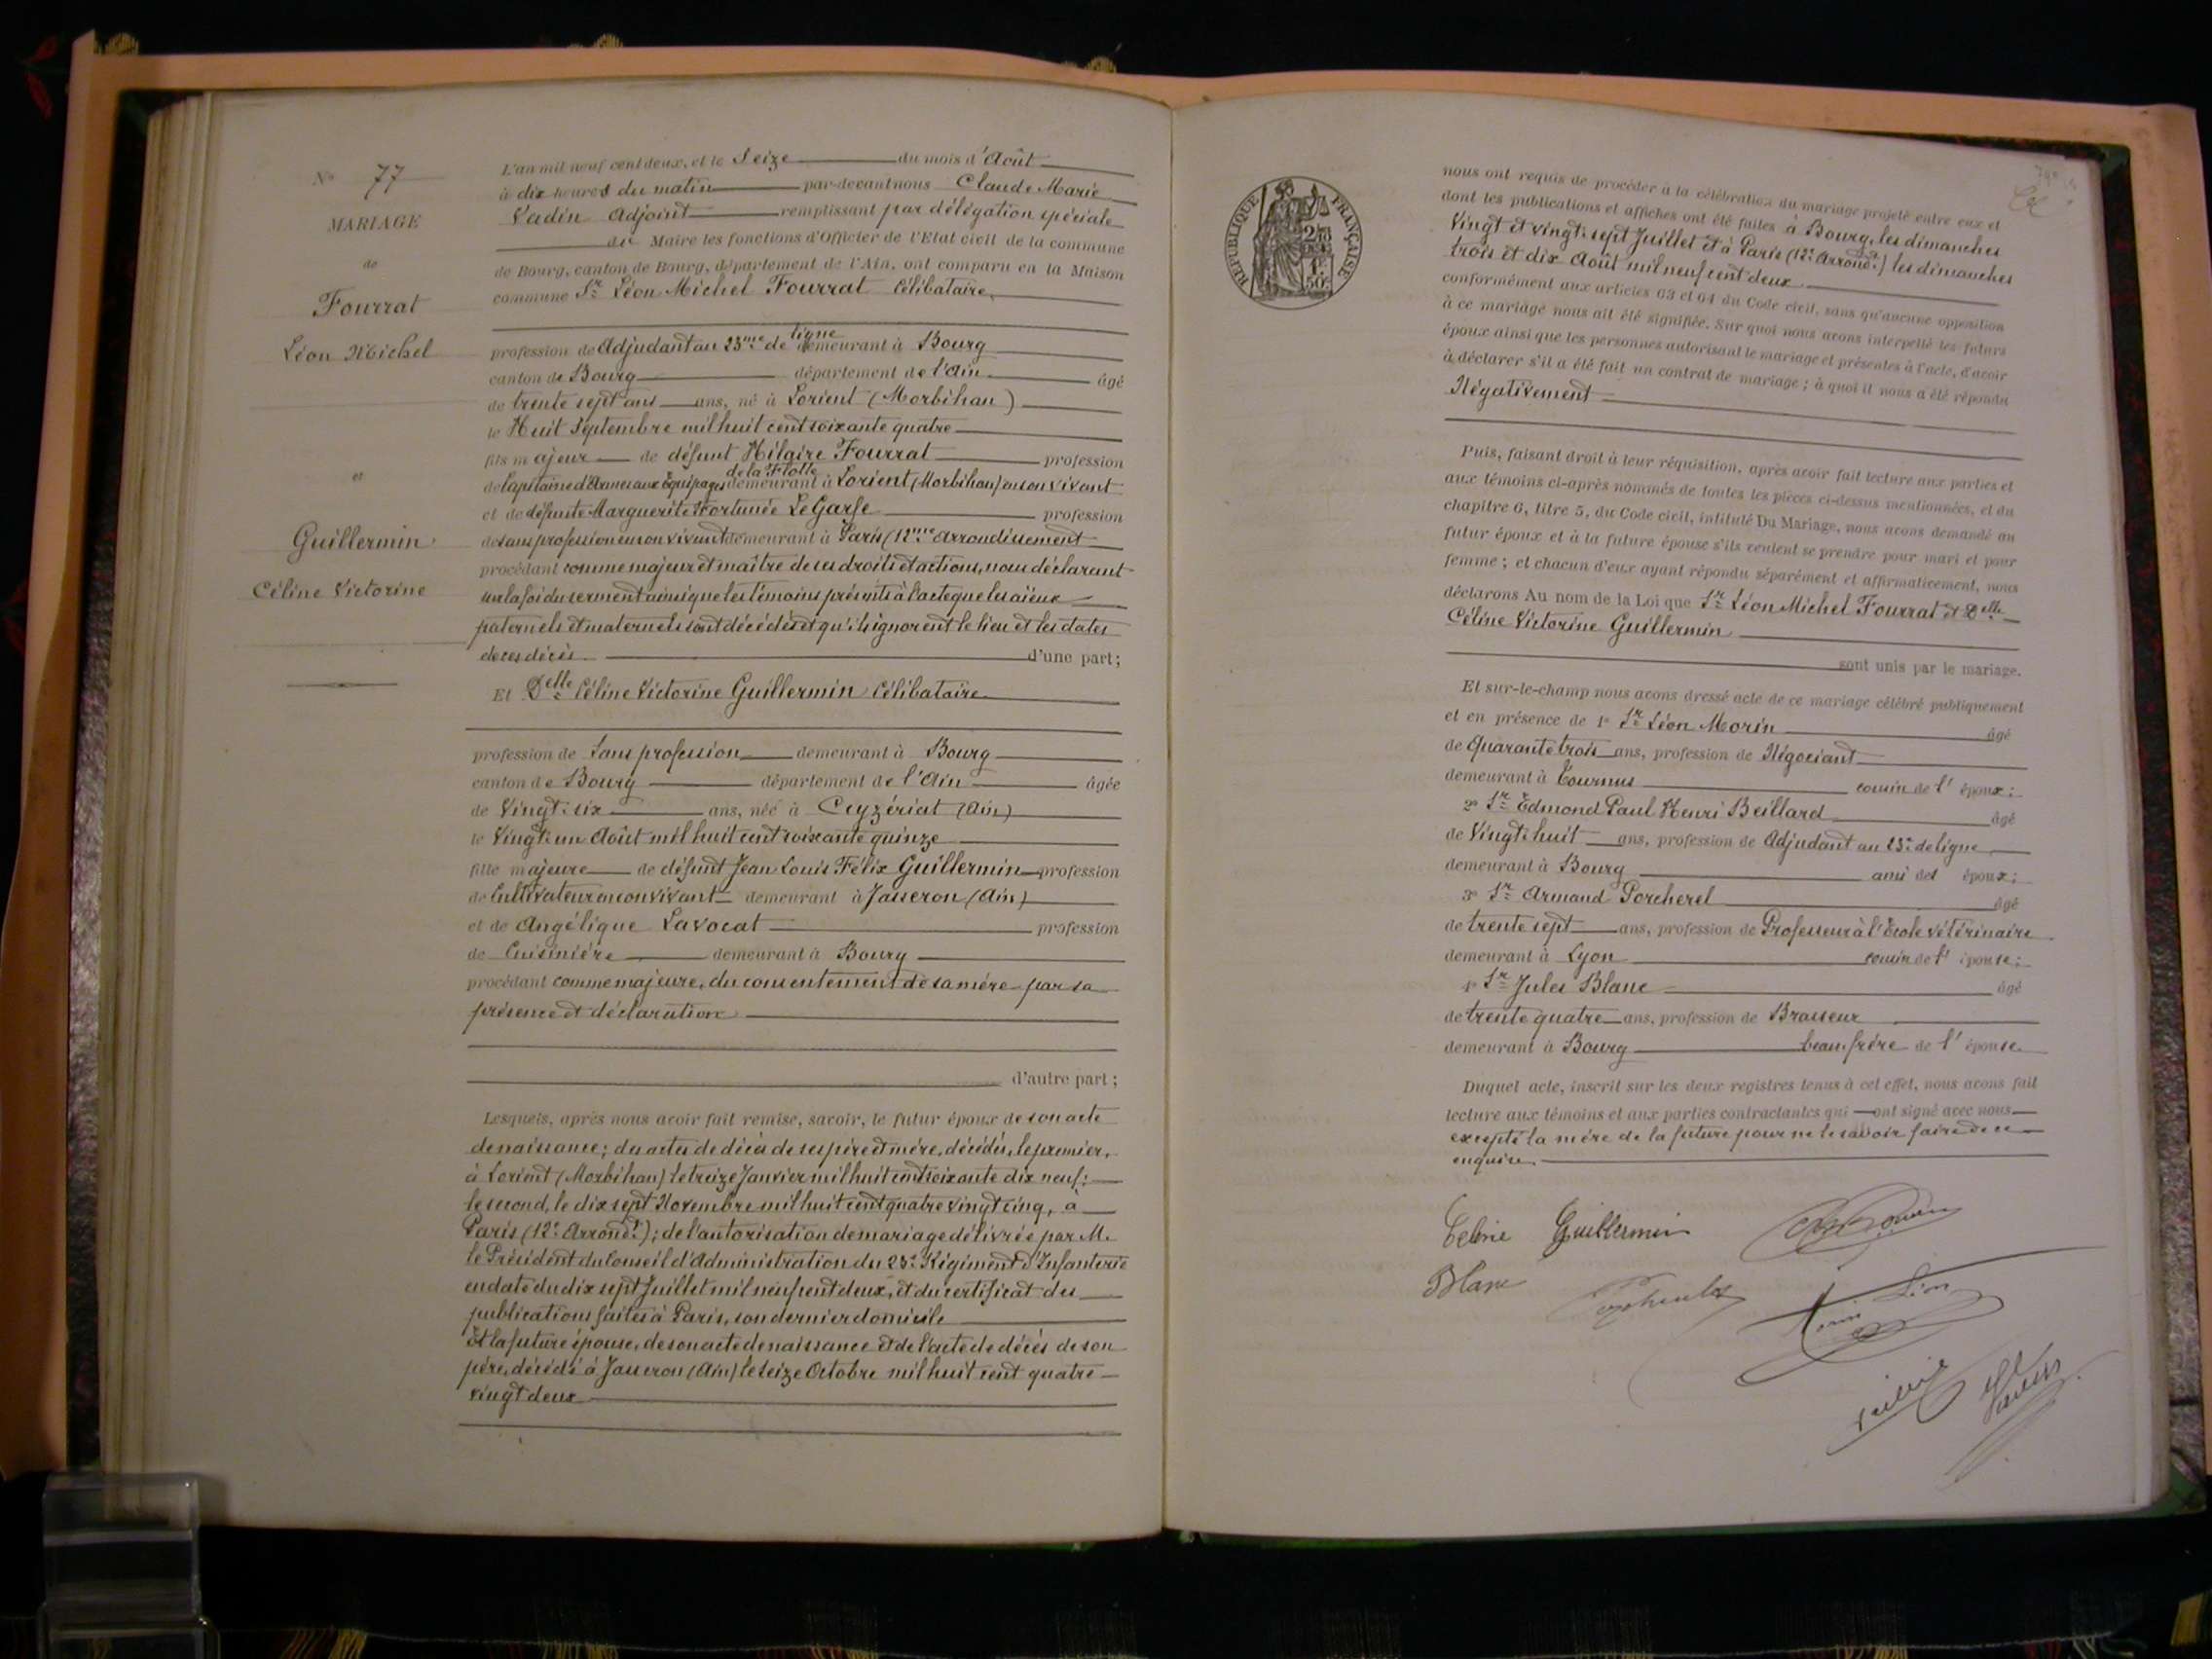 N° 77
MARIAGE
de
Fourrat
Léon Michel
et
Guillermin
Céline Victorine
L'an mil neuf cent deux, et le Seize du mois d'Août
à dix heures du matin par-devant nous Claude Marie
Vadin Adjoint remplissant par délégation spéciale
du Maire les fonctions d'Officier de l'Etat civil de la commune
de Bourg, canton de Bourg, département de l'Ain, ont comparu en la Maison
commune Sr Léon Michel Fourrat Célibataire
profession de Adjudant au 23me de ligne demeurant à Bourg
canton de Bourg département de l'Ain âgé
de trente sept ans ans, né à Lorient (Morbihan)
le Huit Septembre mil huit cent soixante quatre
fils majeur de défunt Hilaire Fourrat profession
de Capitaine d'Armes aux Equipages de la Flotte demeurant à Lorient (Morbihan) en son vivant
et de défunte Marguerite Fortunée Le Garse profession
de sans profession en son vivant demeurant à Paris (12me Arrondissement
procédant comme majeur et maître de ses droits et actions, nous déclarant
sur la foi du serment ainsi que les témoins présents à l'acte que les aïeux
paternels et maternels sont décédés et qu'ils ignorent le lieu et les dates
de ces décès d'une part;
Et Delle Céline Victorine Guillermin Célibataire
profession de Sans profession demeurant à Bourg
canton de Bourg département de l'Ain âgée
de Vingt-six ans, née à Ceyzériat (Ain)
le Vingt-un Août mil huit cent soixante quinze
fille majeure de défunt Jean Louis Félix Guillermin profession
de Cultivateur en son vivant demeurant à Jasseron (Ain)
et de Angélique Lavocat profession
de Cuisinière demeurant à Bourg
procédant comme majeure, du consentement de sa mère par sa
présence et déclaration
d'autre part;
Lesquels, après nous avoir fait remise, savoir, le futur époux de son acte
de naissance; des actes de décès de ses père et mère, décédés, le premier,
à Lorient (Morbihan) le treize Janvier mil huit cent soixante dix neuf;
le second, le dix sept Novembre mil huit cent quatre vingt cinq, à
Paris (12e Arrondt); de l'autorisation de mariage délivrée par M.
le Président du Conseil d'Administration du 23e Régiment d'Infanterie
en date du dix sept Juillet mil neuf cent deux, et du certificat des
publications faites à Paris, son dernier domicile
Et la future épouse, de son acte de naissance et de l'acte de décès de son
père, décédé à Jasseron (Ain) le seize Octobre mil huit cent quatre
vingt deux
REPUBLIQUE FRANÇAISE
nous ont requis de procéder à la célébration du mariage projeté entre eux et
dont les publications et affiches ont été faites à Bourg, les dimanches
Vingt et vingt-sept Juillet et à Paris (12e Arrondt) les dimanches
trois et dix Août mil neuf cent deux
conformément aux articles 63 et 64 du Code civil, sans qu'aucune opposition
à ce mariage nous ait été signifiée. Sur quoi nous avons interpellé les futurs
époux ainsi que les personnes autorisant le mariage et présentes à l'acte, d'avoir
à déclarer s'il a été fait un contrat de mariage; à quoi il nous a été répondu
Négativement
Puis, faisant droit à leur réquisition, après avoir fait lecture aux parties et
aux témoins ci-après nommés de toutes les pièces ci-dessus mentionnées, et du
chapitre 6, titre 5, du Code civil, intitulé Du Mariage, nous avons demandé au
futur époux et à la future épouse s'ils veulent se prendre pour mari et pour
femme; et chacun d'eux ayant répondu séparément et affirmativement, nous
déclarons Au nom de la Loi que Sr Léon Michel Fourrat et Delle
Céline Victorine Guillermin
sont unis par le mariage.
Et sur-le-champ nous avons dressé acte de ce mariage célébré publiquement
et en présence de 1° Sr Léon Morin âgé
de Quarante trois ans, profession de Négociant
demeurant à Tournus cousin de l' époux;
2° Sr Edmond Paul Henri Beillard âgé
de Vingt-huit ans, profession de Adjudant au 23e de ligne
demeurant à Bourg ami des époux;
3° Sr Armand Porcherel âgé
de trente sept ans, profession de Professeur à l'Ecole vétérinaire
demeurant à Lyon cousin de l' épouse;
4° Sr Jules Blanc âgé
de trente quatre ans, profession de Brasseur
demeurant à Bourg beau-frère de l' épouse
Duquel acte, inscrit sur les deux registres tenus à cet effet, nous avons fait
lecture aux témoins et aux parties contractantes qui ont signé avec nous
excepté la mère de la future pour ne le savoir faire de ce
enquise.
Celine Guillermin
Blanc
Morin Léon